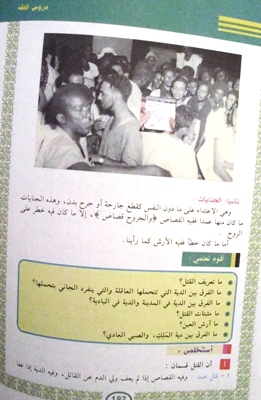 دروس الفقه
ثانيا: الجنايات
وهي الاعتداء على ما دون النفس كقطع جارحة أو جرح بدن، وهذه الجنايات
ما كان منها عمدا ففيه القصاص ﴿والجروح قصاص﴾، إلا ما كان فيه خطر على
الروح.
أما ما كان خطأ ففيه الأرش كما رأينا.
أقوم تعلمي :
ما تعريف القتل؟
ما الفرق بين الدية التي تتحملها العاقلة والتي ينفرد الجاني بتحملها؟
ما الفرق بين الدية في المدينة والدية في البادية؟
ما مثبتات القتل؟
ما أرش العين؟
ما الفرق بين دية المليك، والصبي العادي؟
أستخلص :
1 أن القتل قسمان :
1 - قتل عمد : وفيه القصاص إذا لم يعف ولي الدم عن القاتل، وفيه الدية إذا عفا
192